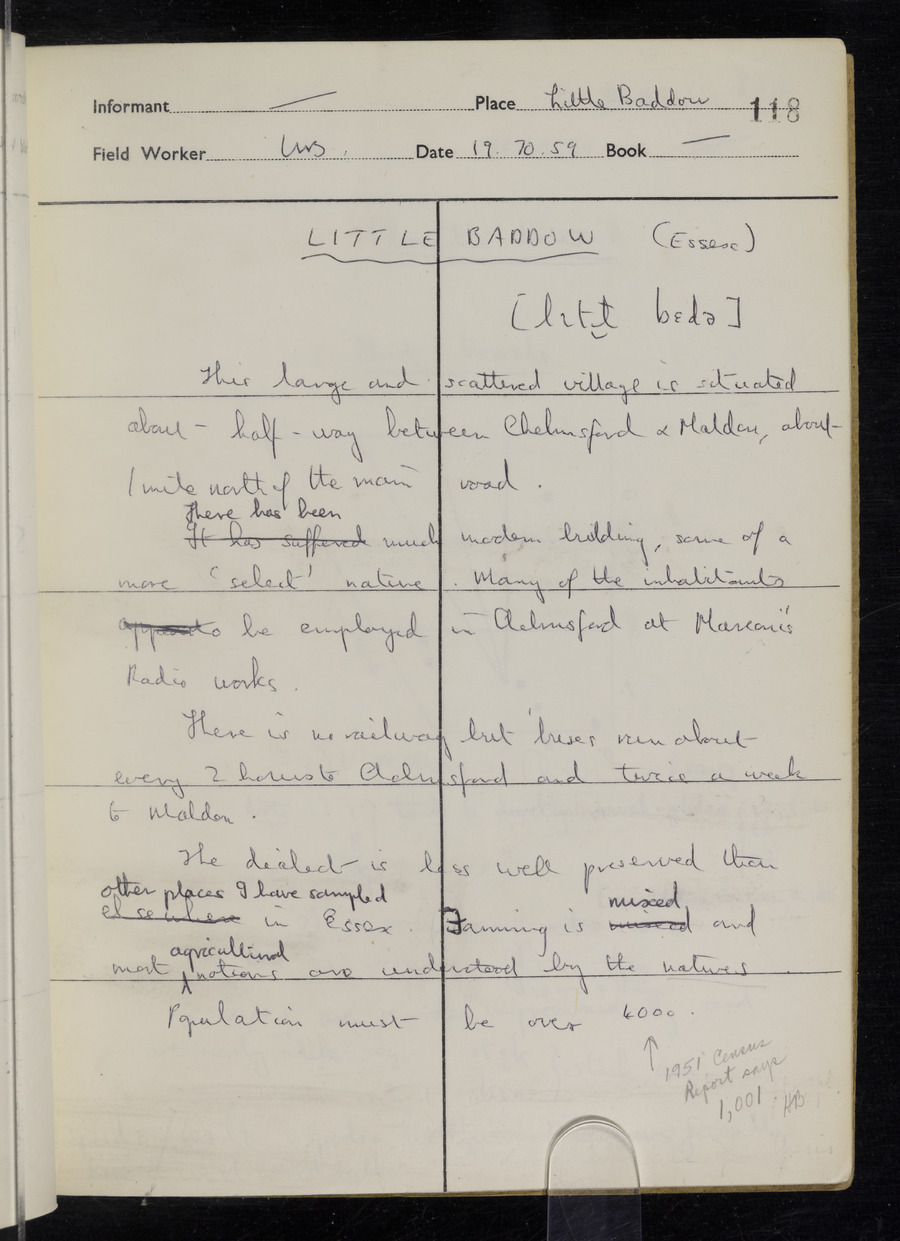 Informant — Place Little Baddow 118
Field Worker Date 19.10.59 Book —
LITTLE BADDOW (Essex)
[lɪtɫ̩ bɛdə]
This large and scattered village is situated
about half-way between Chelmsford & Maldon, about
1 mile north of the main road.
There has been
It has suffered much modern building, some of a
more 'select' nature. Many of the inhabitants
appear to be employed in Chelmsford at Marconi's
Radio works.
There is no railway but 'buses run about
every 2 hours to Chelmsford and twice a week
to Maldon.
The dialect is less well preserved than
other places I have sampled mixed
elsewhere in Essex. Farming is mixed and
agricultural
most notions are understood by the natives.
Population must be over 4000.
↑
1951 Census
Report says
1,001 HB